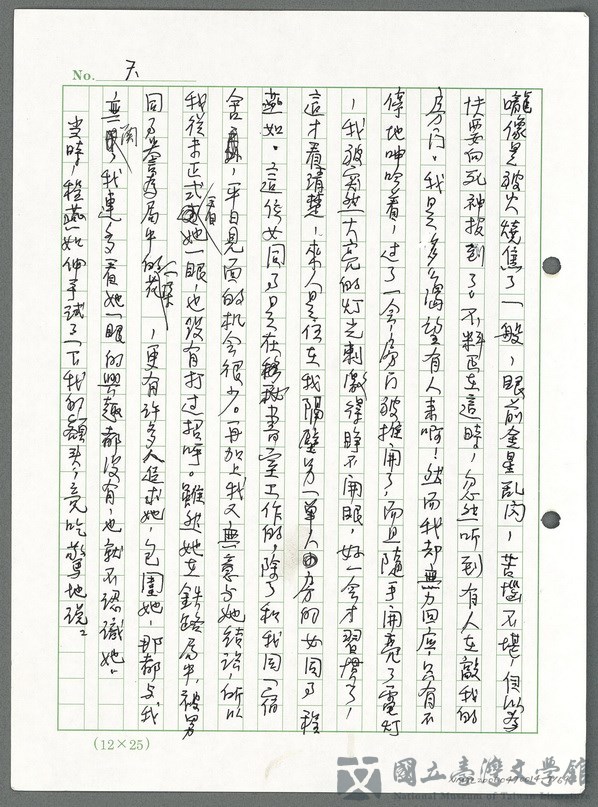 No. 六
嚨像是被火燒焦了一般，眼前金星乱闪，苦惱不堪，自以為
快要向死神报到了。不料正在這時，忽然听到有人在敲我的
房门。我是多多渴望有人来啊！然而我却無力回应，只有不
停地呻吟着，过了一会，房门被推開了，而且隨手開亮了電灯
，我被突然大亮的灯光刺激得睁不開眼，好一会才習慣了，
這才看清楚，來人是住在我隔壁另一單人房的女同事程
燕如。這位女同事是在秘書室工作的，除了和我同一宿
舍，平日見面的机会很少。再加上我又無意与她結識，所以
我從未正式看她一眼，也沒有打过招呼。雖然她在鉄路局中，被男
同事羣為局中的一朵花，更有许多人追求她，包圍她，那都与我
無関，我連多看她一眼的興趣都沒有，也就不認識她。
当時，程燕如伸手試了一下我的額头，竟吃驚地说：
(12×25)
國立臺灣文學館
National Museum of Taiwan Literature